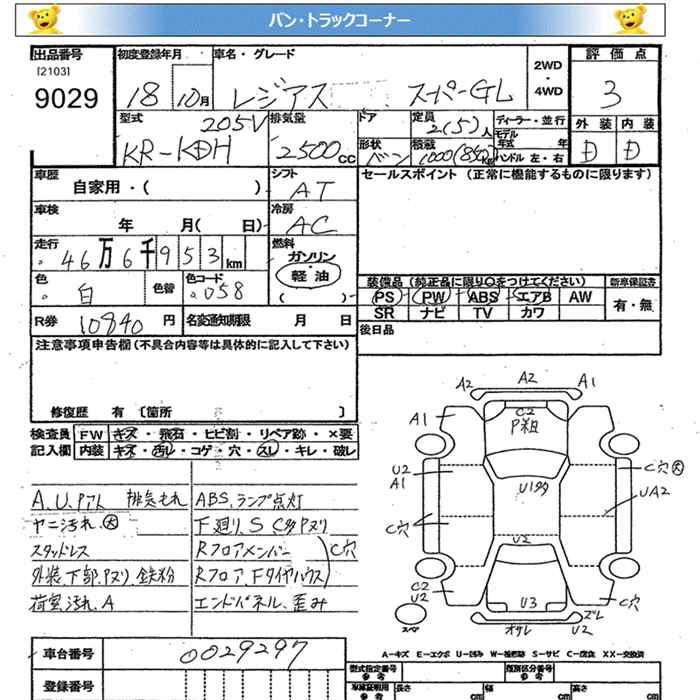 バン・トラックコーナー
出品番号 初度登録年月 車名・グレード 2WD ・ 4WD 評価点
[2103]
9029 18 10月 レジアス スーパーGL 3
型式 排気量 ドア 定員 ディーラー・並行 外装 内装
KR-KDH 205V 2500cc 形状 バン 2(5)人 積載 1000(850)kg モデル年式 年 ハンドル 左・右 D D
車歴 シフト セールスポイント (正常に機能するものに限ります)
自家用・( ) AT
車検 冷房
年 月( 日) AC
走行 燃料
46万6千953km ガソリン ・ 軽油
色 色替 色コード ( )
白 058
装備品 (純正品に限り○をつけてください) 新車保証書
PS PW ABS エアB AW 有・無
SR ナビ TV カワ
R券 10840円 名変通知期限 月 日 後日品
注意事項申告欄(不具合内容等は具体的に記入して下さい)
修復歴 有〔箇所 〕
検査員 FW キズ・飛石・ヒビ割・リペア跡・×要
記入欄 内装 キズ・汚れ・コゲ・穴・スレ・キレ・破レ
A、U、Pアト 排気もれ ABS、ランプ点灯
ヤニ汚れ、大 下廻り、S C多Pヌリ
スタッドレス Rフロアメンバー
外装、下部、Pヌリ、鉄粉 Rフロア、Fタイヤハウス C穴
荷室汚れ、A エンドパネル、歪み
A2 A2 A1
A1 C2 P粗
U2 A1 U1多 C穴大
C穴 UA2
U2
C2 U2 U3 C穴
スペア オサレ ズレ U2
A-キズ E-エクボ U-凹み W-補修跡 S-サビ C-腐食 XX-交換済
車台番号 0029297
登録番号
型式指定番号 参考 類別区分番号 参考
車庫証明用 参考 長さ cm 幅 cm 高さ cm